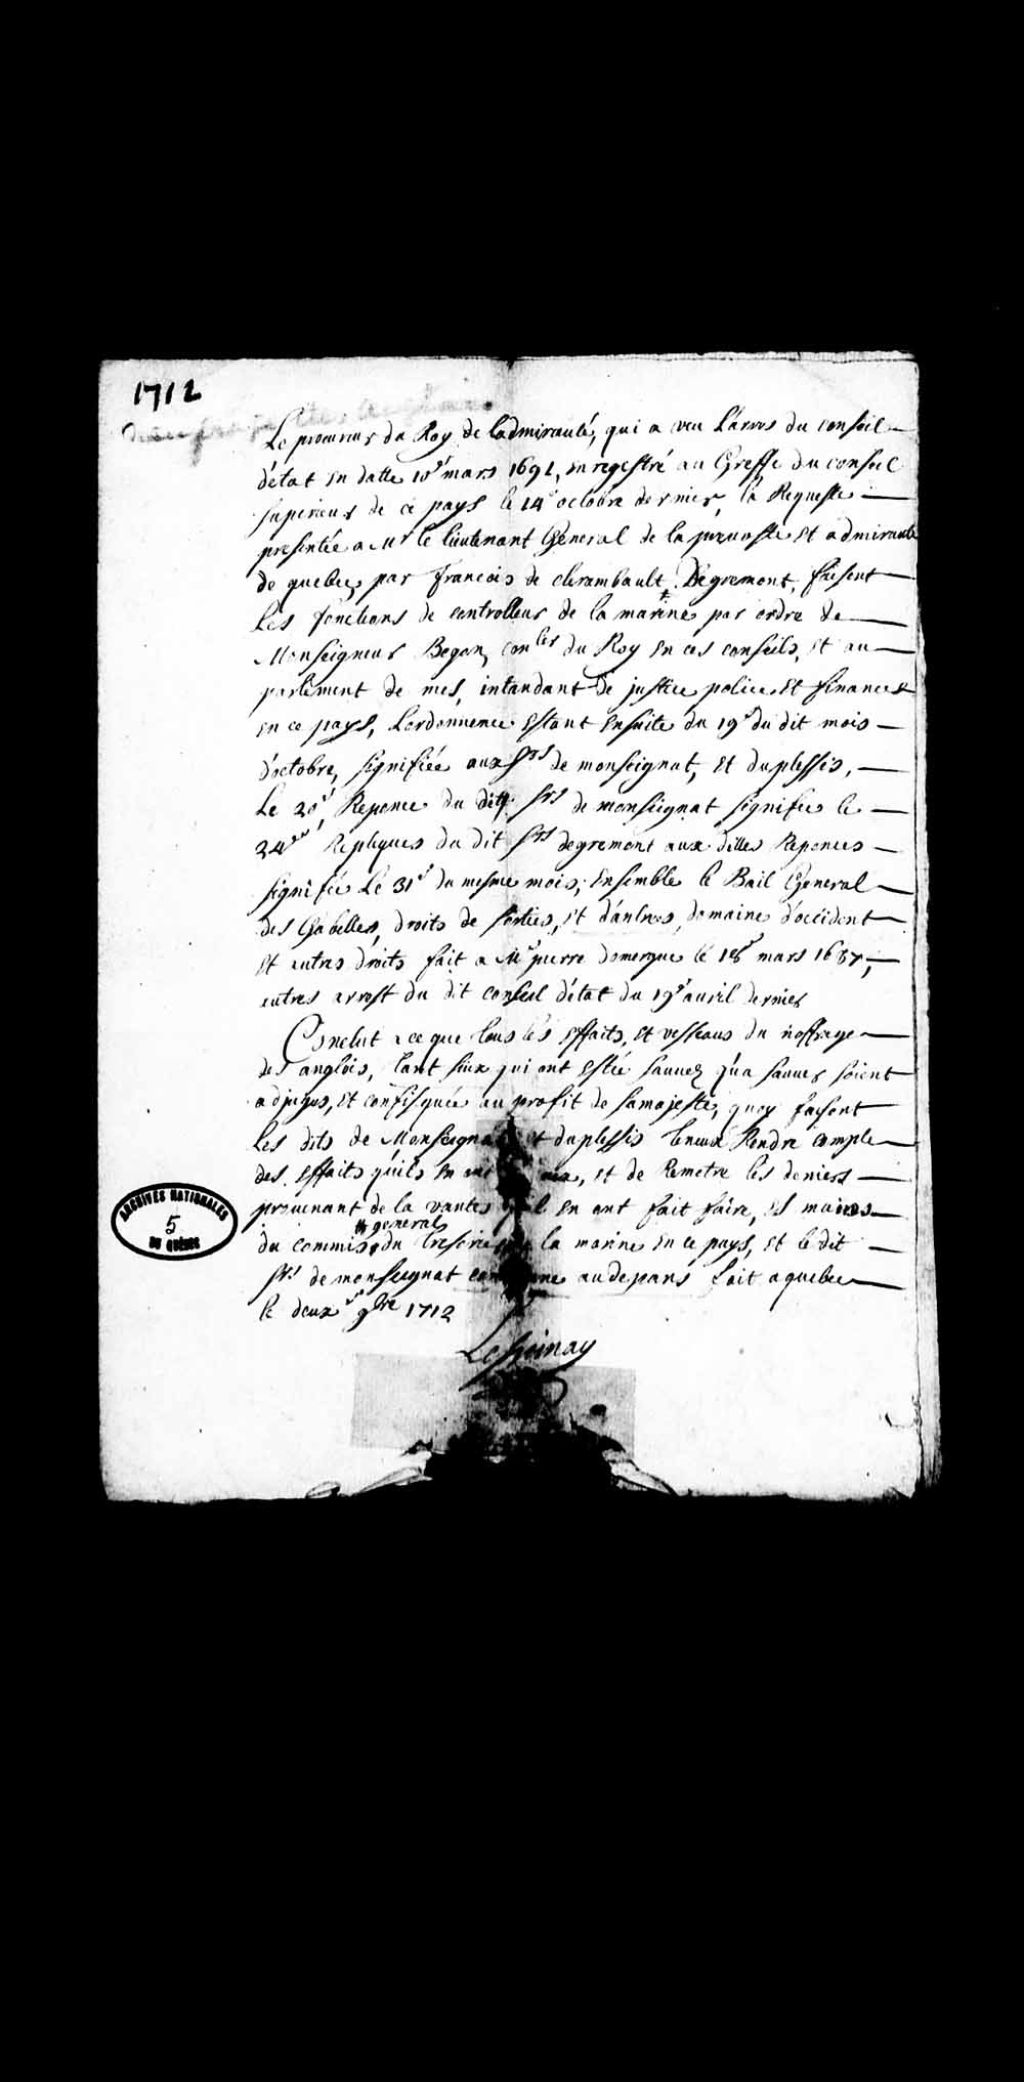 1712
Le procureur du Roy de Ladmirauté, qui a veu L'arres du conseil
d'état en datte 10e mars 1691, en regestré au Greffe du conseil
superieur de ce pays le 14e octobre dernier, la Requeste
presentée a Mr le lieutenant General de la prevoste et admirauté
de quebec, par francois de clerambault Degremont, faisent
Les fonctions de controlleur de la marine par ordre de
Monseigneur Begon, conler du Roy en ces conseils, et au
parlement de mes, intandant de justice police et finances
en ce pays, Lordonnence estant ensuite du 19e du dit mois
d'octobre, signifiée aux Srs de monseignat, et duplessis,
Le 20e, Reponce du dit Srs de monseignat signifiee le
24me Repliques du dit Srs degremont aux dittes Reponces
signifiée Le 31e du mesme mois, Ensemble le Bail General
des Gabelles, droits de sorties, et d'antrees, domaine d'occident
et autres droits fait a Me pierre domergue le 18e mars 1687,
autres arrest du dit conseil d'état du 19e avril dernier
Conclut a ce que tous les effaits, et vesseaus du noffrage
des anglois, tant siux qui ont estée sauvez qu'a sauver soient
adjuges, et confisquée au profit de samajesté, quoy faisent
Les dits de Monseignat et duplessis teneux Rendre compte
des effaits quils en ont, et de Remetre les deniers
provenant de la vantes en ont fait faire, es mains
general
du commis du tresorie la marine en ce pays, et le dit
Srs de monseignat audepans fait a quebec
le deux me 9bre 1712
Lespinay
ARCHIVES NATIONALES
5
DU QUÉBEC